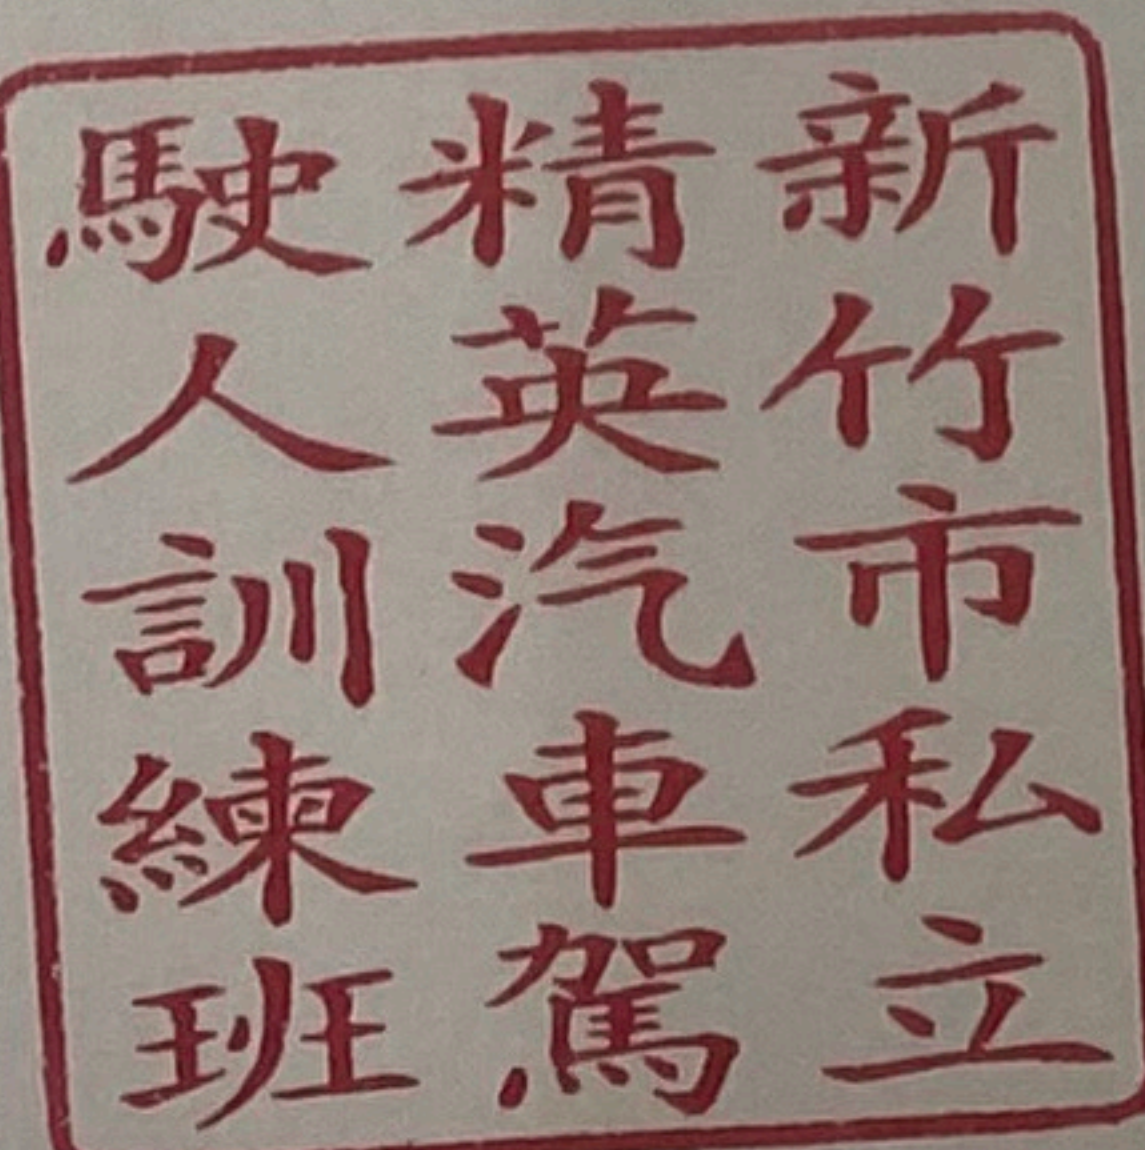 新竹市私立
精英汽車駕
駛人訓練班